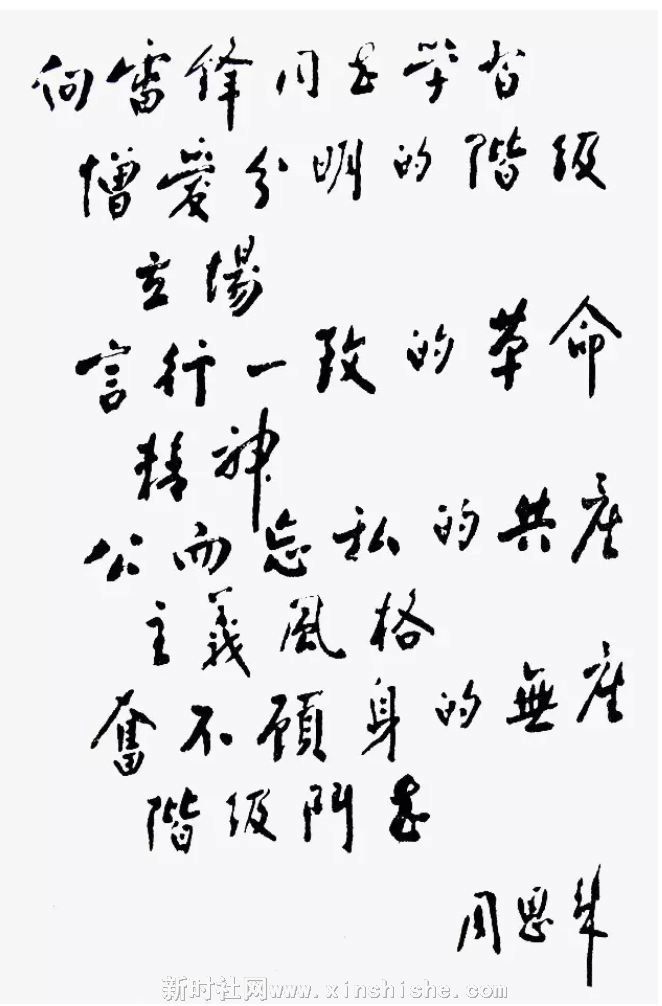 向雷锋同志学习
憎爱分明的階级
立場
言行一致的革命
精神
公而忘私的共产
主義風格
奮不顧身的無产
階级鬥志
周恩来
新时社网www.xinshishe.com